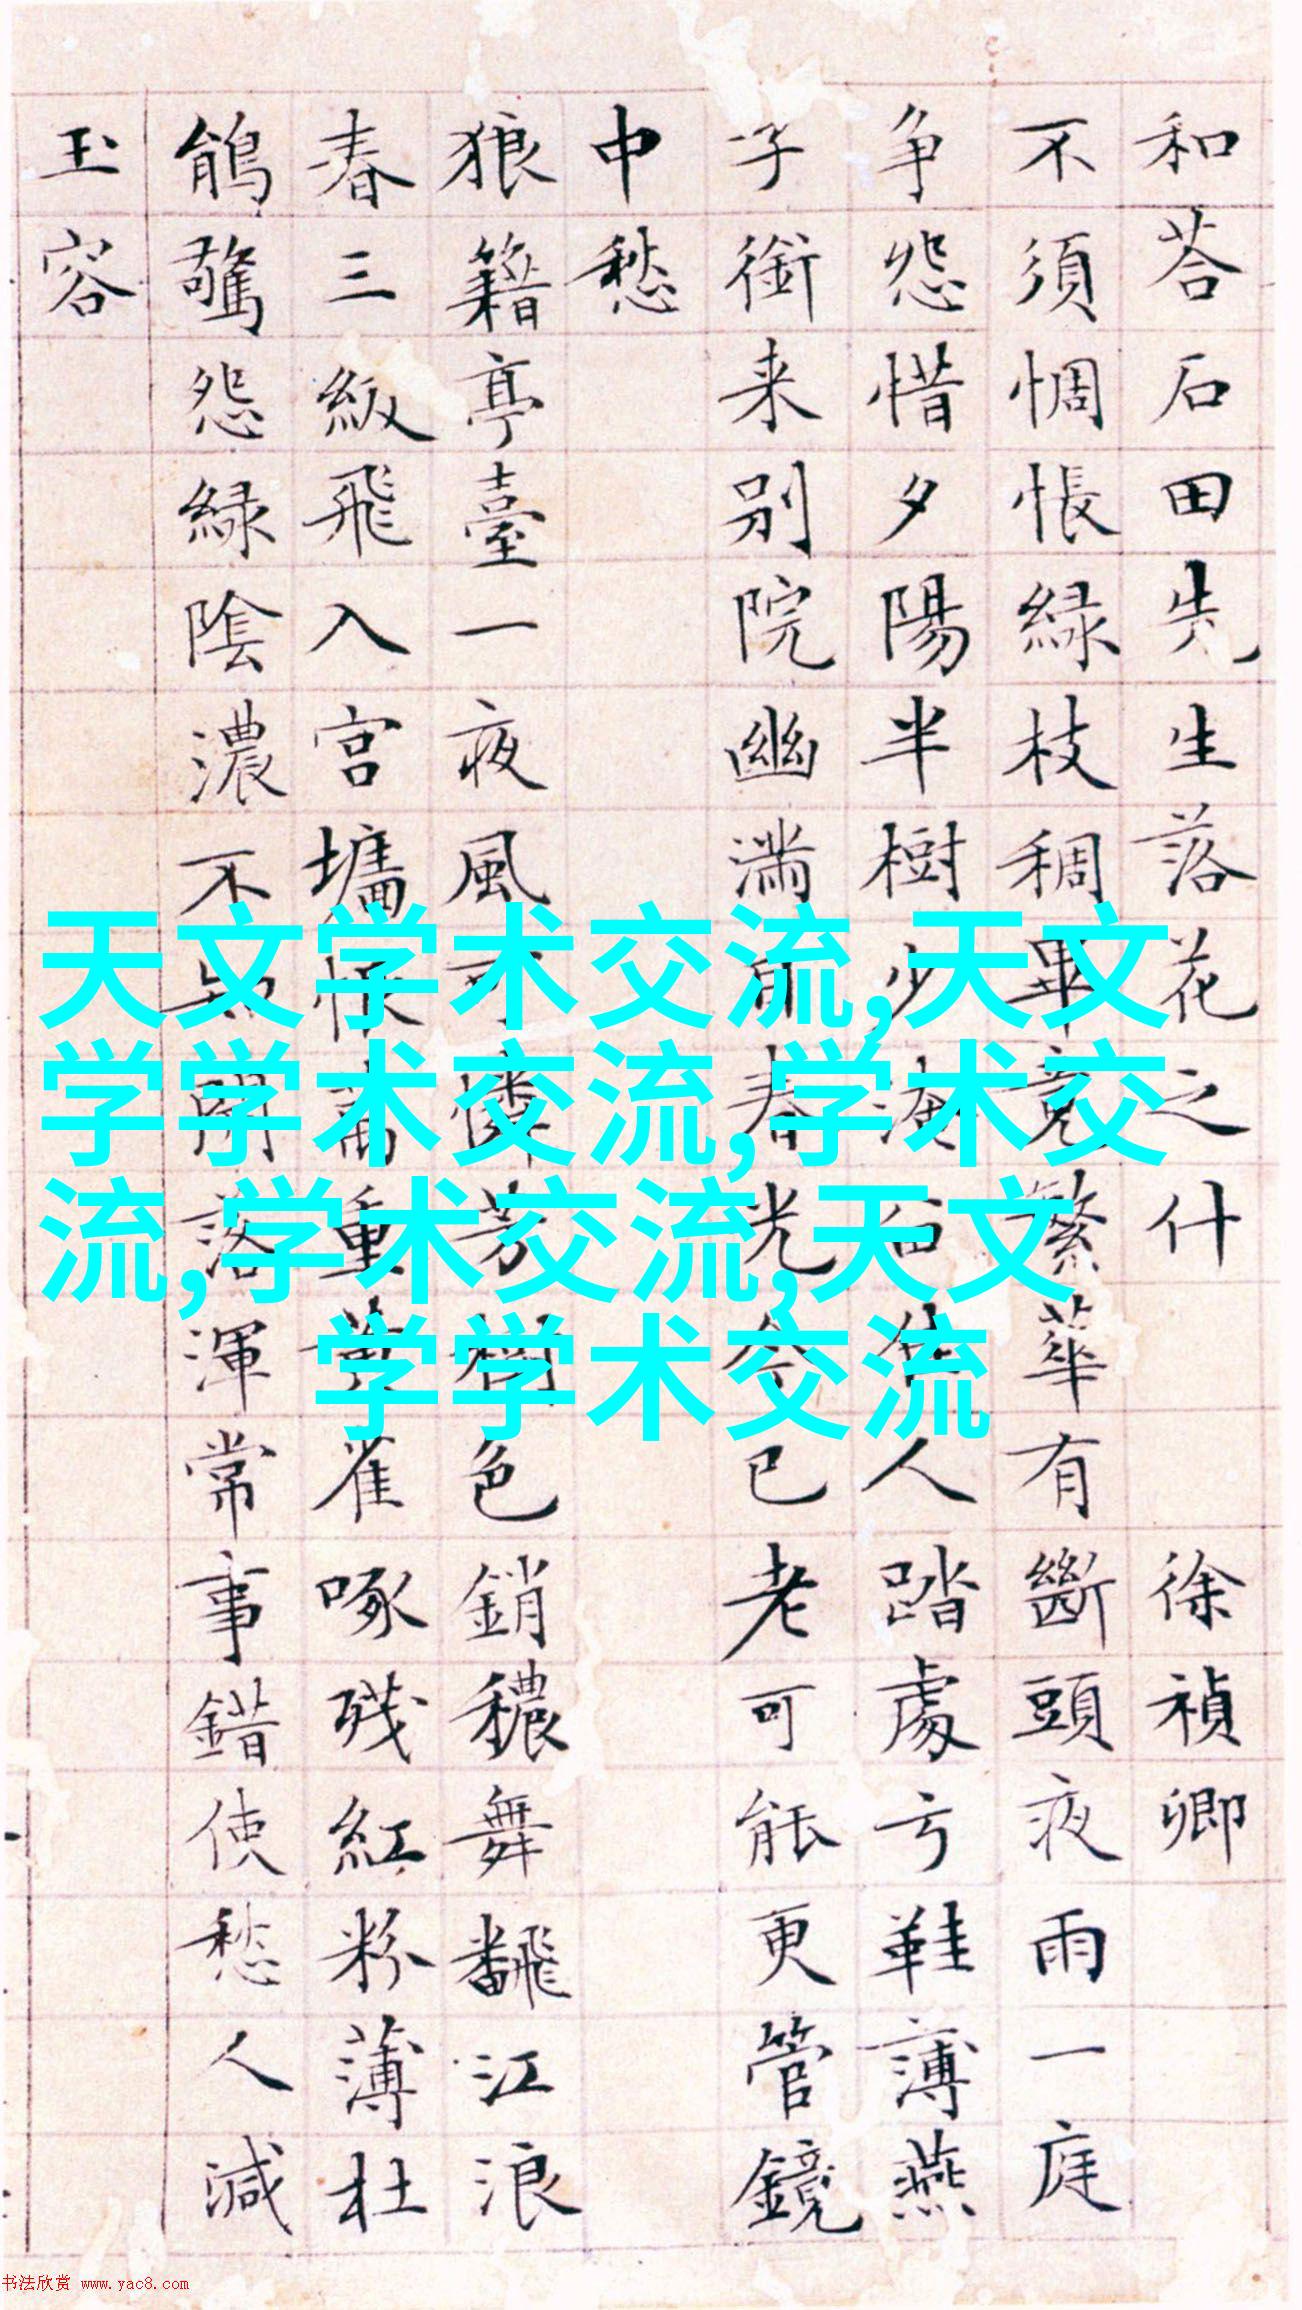 和荅石田先生落花之什 徐禎卿
不須惆悵緑枝稠畢竟繁華有斷頭夜雨一庭
争怨惜夕陽半樹少淹 人踏處亏鞋薄燕
子銜来别院幽滿 春光今已老可能更管鏡
中愁
狼籍亭臺一夜風可憐芳樹色銷穠舞飜江浪
春三級飛入宫墉 重黄雀啄残紅粉薄杜
鵑驚怨緑陰濃不 開落渾常事錯使愁人減
玉容
天文学术交流,天文
学学术交流,学术交
流,学术交流,天文
学学术交流
书法欣赏 www.yac8.com